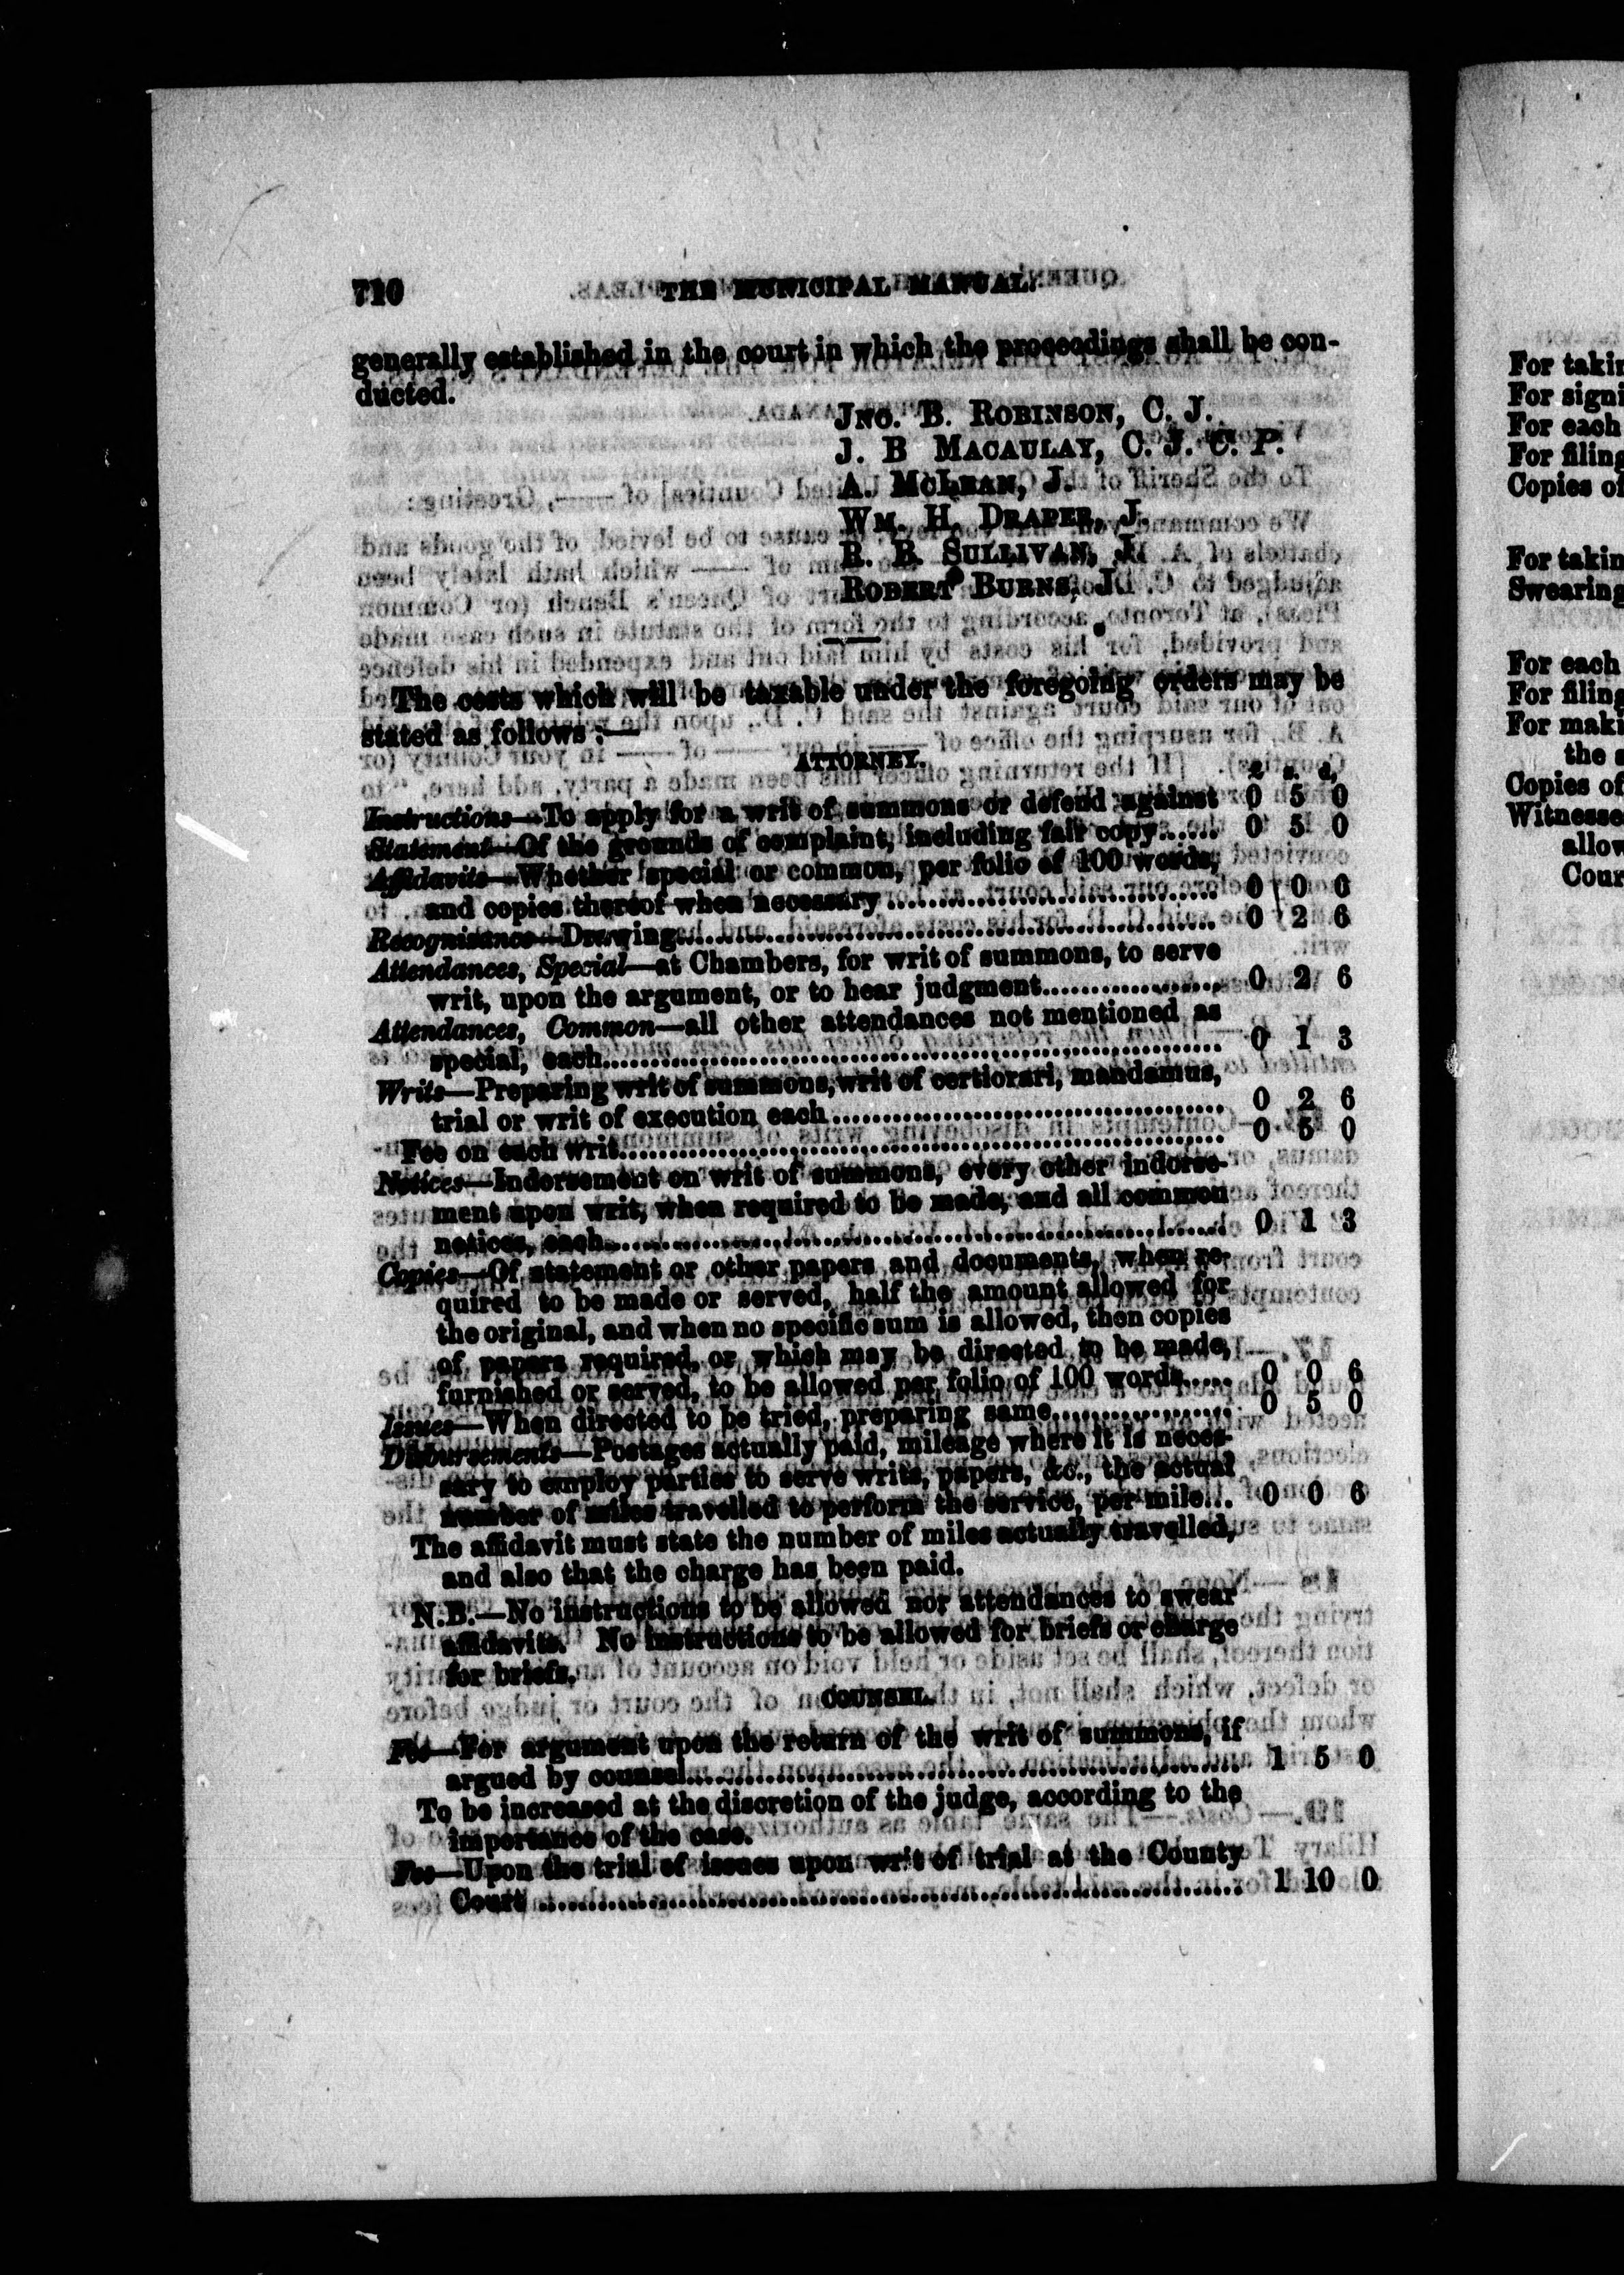 710 THE MUNICIPAL MANUAL.
generally established in the court in which the proceedings shall be con-
ducted.
JNO. B. ROBINSON, C. J.
J. B MACAULAY, C. J. C. P.
A. MCLEAN, J.
WM. H. DRAPER, J.
R. B. SULLIVAN, J.
ROBERT BURNS, J.
The costs which will be taxable under the foregoing orders may be
stated as follows :—
ATTORNEY.
£ s. d.
Instructions—To apply for a writ of summons or defend against 0 5 0
Statement—Of the grounds of complaint, including fair copy...... 0 5 0
Affidavits—Whether special or common, per folio of 100 words,
and copies thereof when necessary .............................. 0 0
Recognisance—Drawing................................................ 0 2 6
Attendances, Special—at Chambers, for writ of summons, to serve
writ, upon the argument, or to hear judgment.................. 0 2 6
Attendances, Common—all other attendances not mentioned as
special, each............................................................ 0 1 3
Writs—Preparing writ of summons, writ of certiorari, mandamus,
trial or writ of execution each...................................... 0 2 6
Fee on each writ.......................................................... 0 5 0
Notices—Indorsement on writ of summons, every other indorse-
ment upon writ, when required to be made, and all common
notices, each............................................................ 0 1 3
Copies—Of statement or other papers and documents, when re-
quired to be made or served, half the amount allowed for
the original, and when no specific sum is allowed, then copies
of papers required, or which may be directed to be made,
furnished or served, to be allowed per folio of 100 words..... 0 0 6
Issues—When directed to be tried, preparing same.................. 0 5 0
Disbursements—Postages actually paid, mileage where it is neces-
sary to employ parties to serve writs, papers, &c., the actual
number of miles travelled to perform the service, per mile... 0 0 6
The affidavit must state the number of miles actually travelled,
and also that the charge has been paid.
N.B.—No instructions to be allowed nor attendances to swear
affidavits. No instructions to be allowed for briefs or charge
for briefs.
COUNSEL.
Fee—For argument upon the return of the writ of summons, if
argued by counsel...................................................... 1 5 0
To be increased at the discretion of the judge, according to the
importance of the case.
Fee—Upon the trial of issues upon writ of trial at the County
Court ...................................................................... 1 10 0
For takin
For signi
For each
For filing
Copies of
For takin
Swearing
For each
For filing
For maki
the s
Copies of
Witnesse
allow
Cour